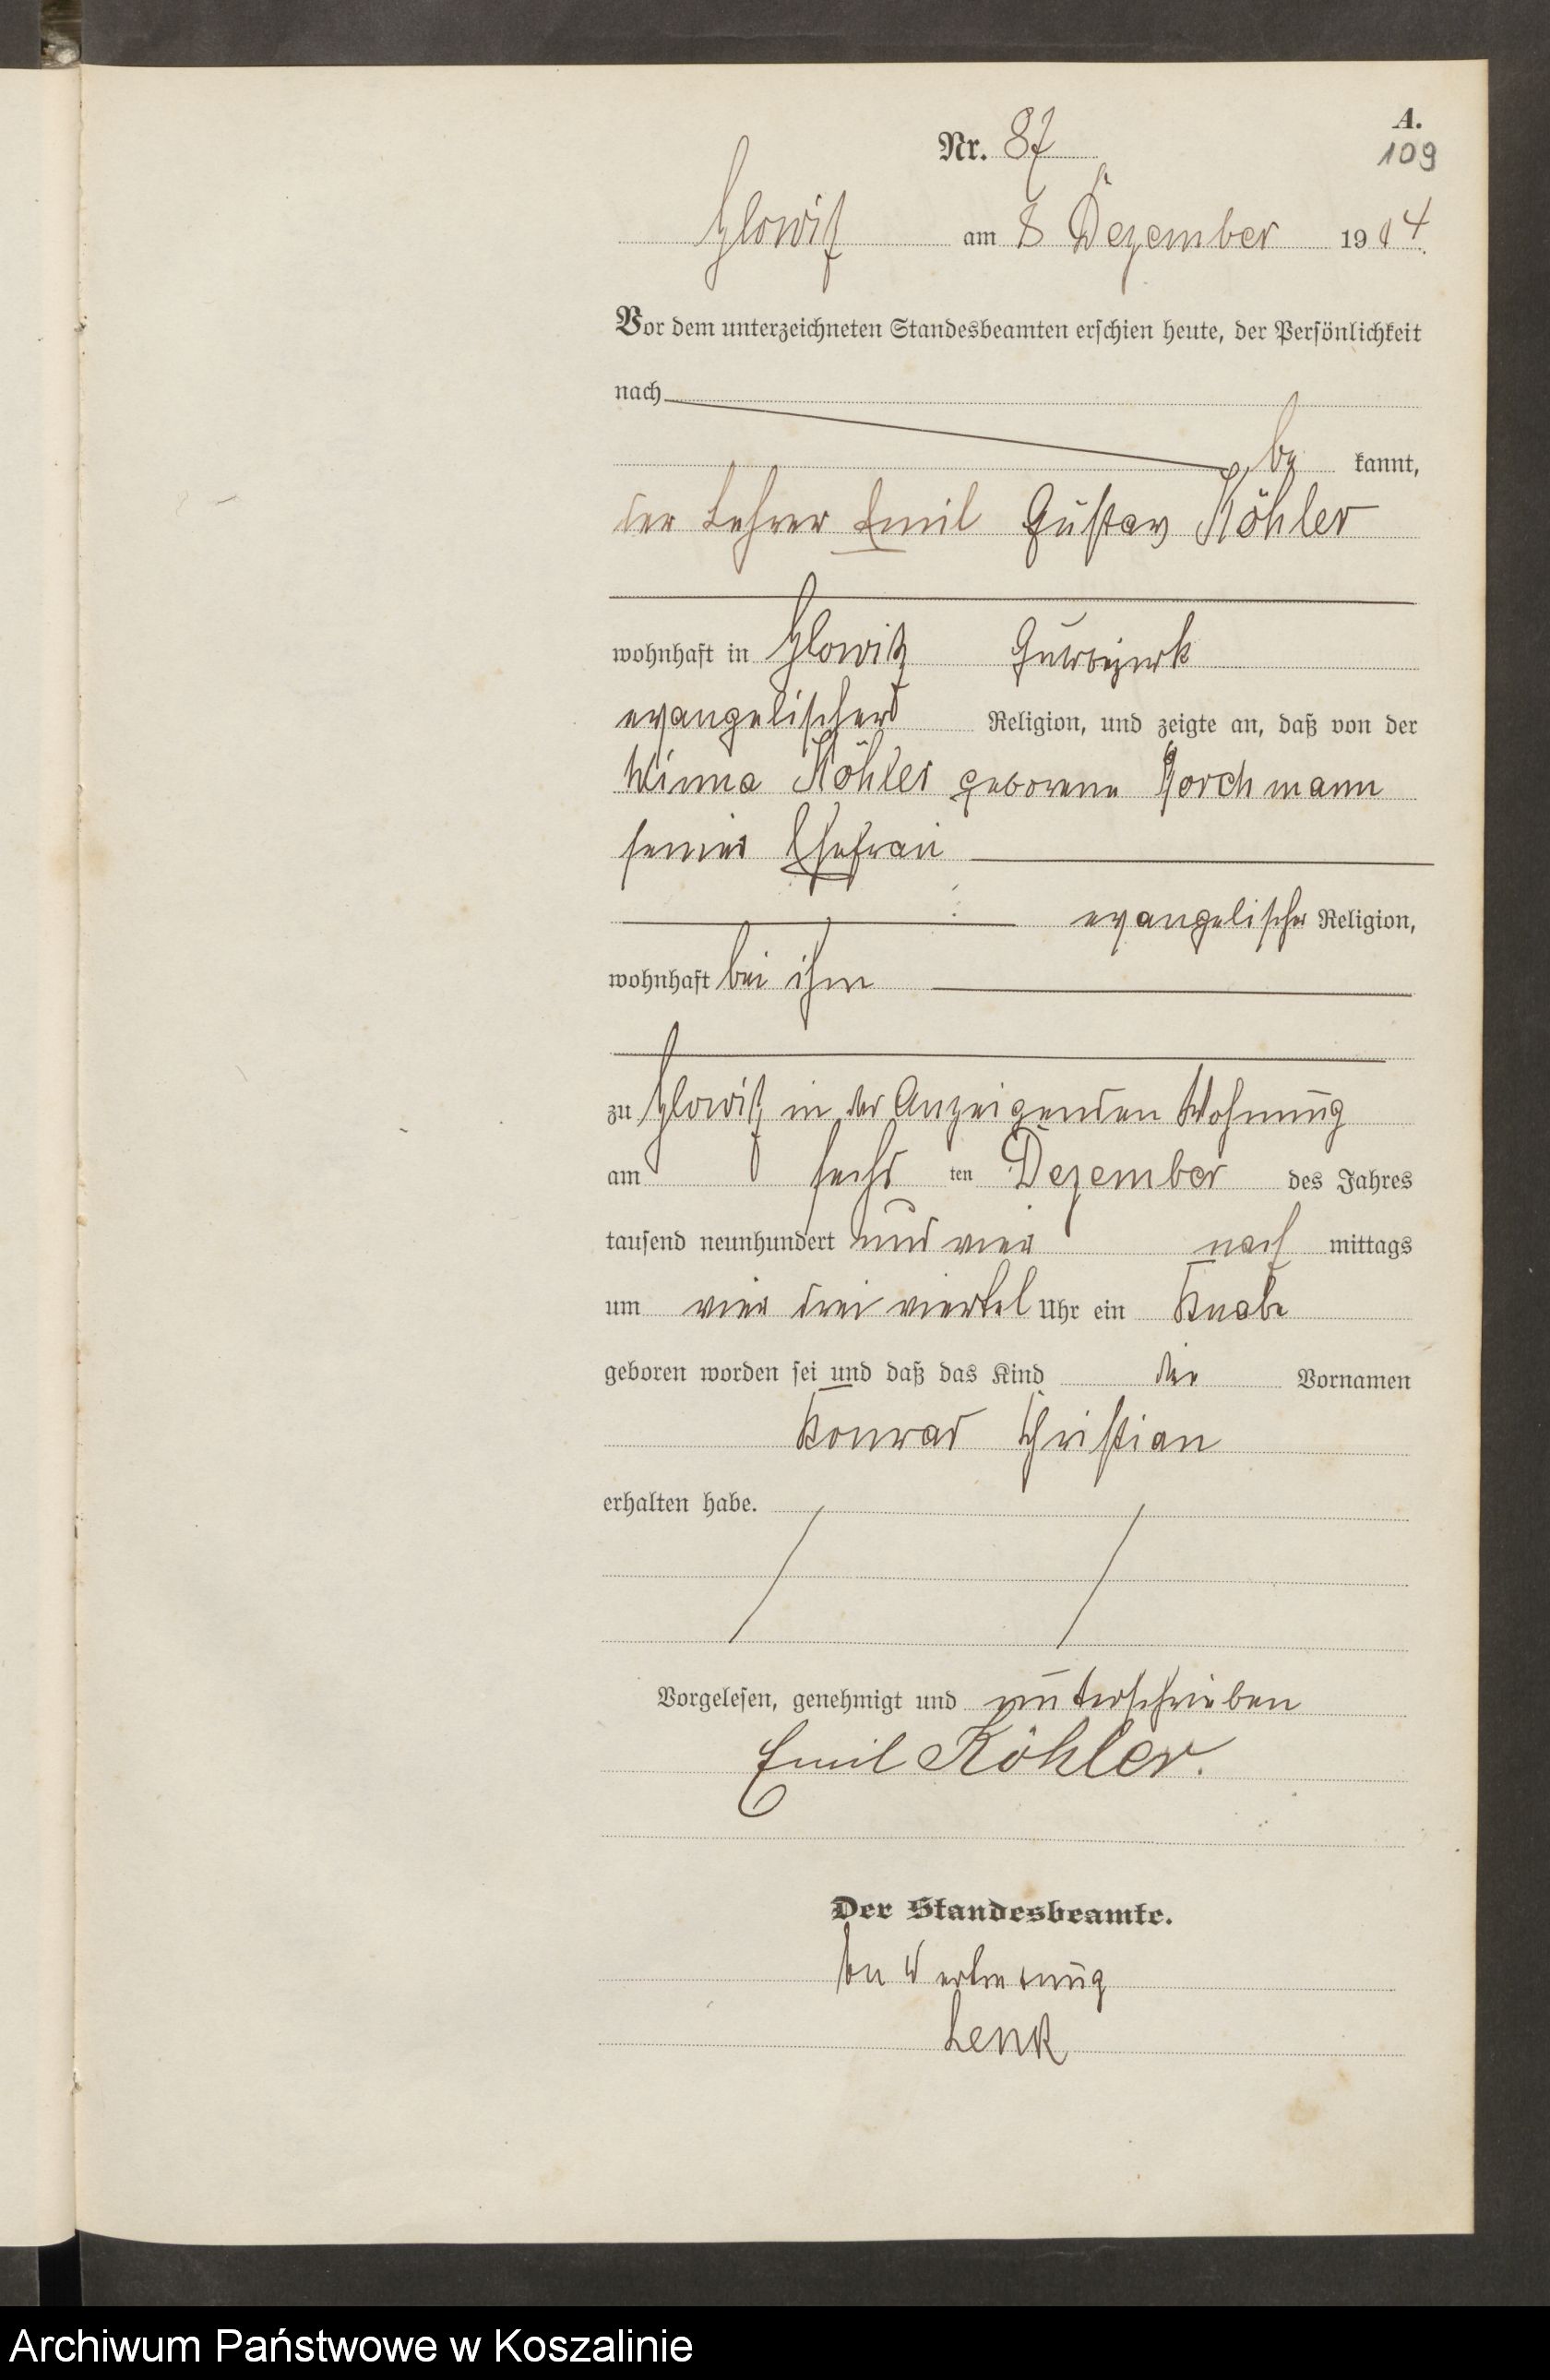 A.
Nr. 87
109
Glowitz am 8 Dezember 1904.
Vor dem unterzeichneten Standesbeamten erschien heute, der Persönlichkeit
nach
be kannt,
der Lehrer Emil Gustav Köhler
wohnhaft in Glowitz Gutsbezirk
evangelischer Religion, und zeigte an, daß von der
Minna Köhler geborene
seiner Ehefrau
evangelischer Religion,
wohnhaft bei ihm
zu Glowitz in der Anzeigenden Wohnung
am sechs ten Dezember des Jahres
tausend neunhundert und vier nach mittags
um vier drei viertel Uhr ein Knabe
geboren worden sei und daß das Kind die Vornamen
Konrad Christian
erhalten habe.
Vorgelesen, genehmigt und unterschrieben
Emil Köhler.
Der Standesbeamte.
In Vertretung
Lenk
Archiwum Państwowe w Koszalinie